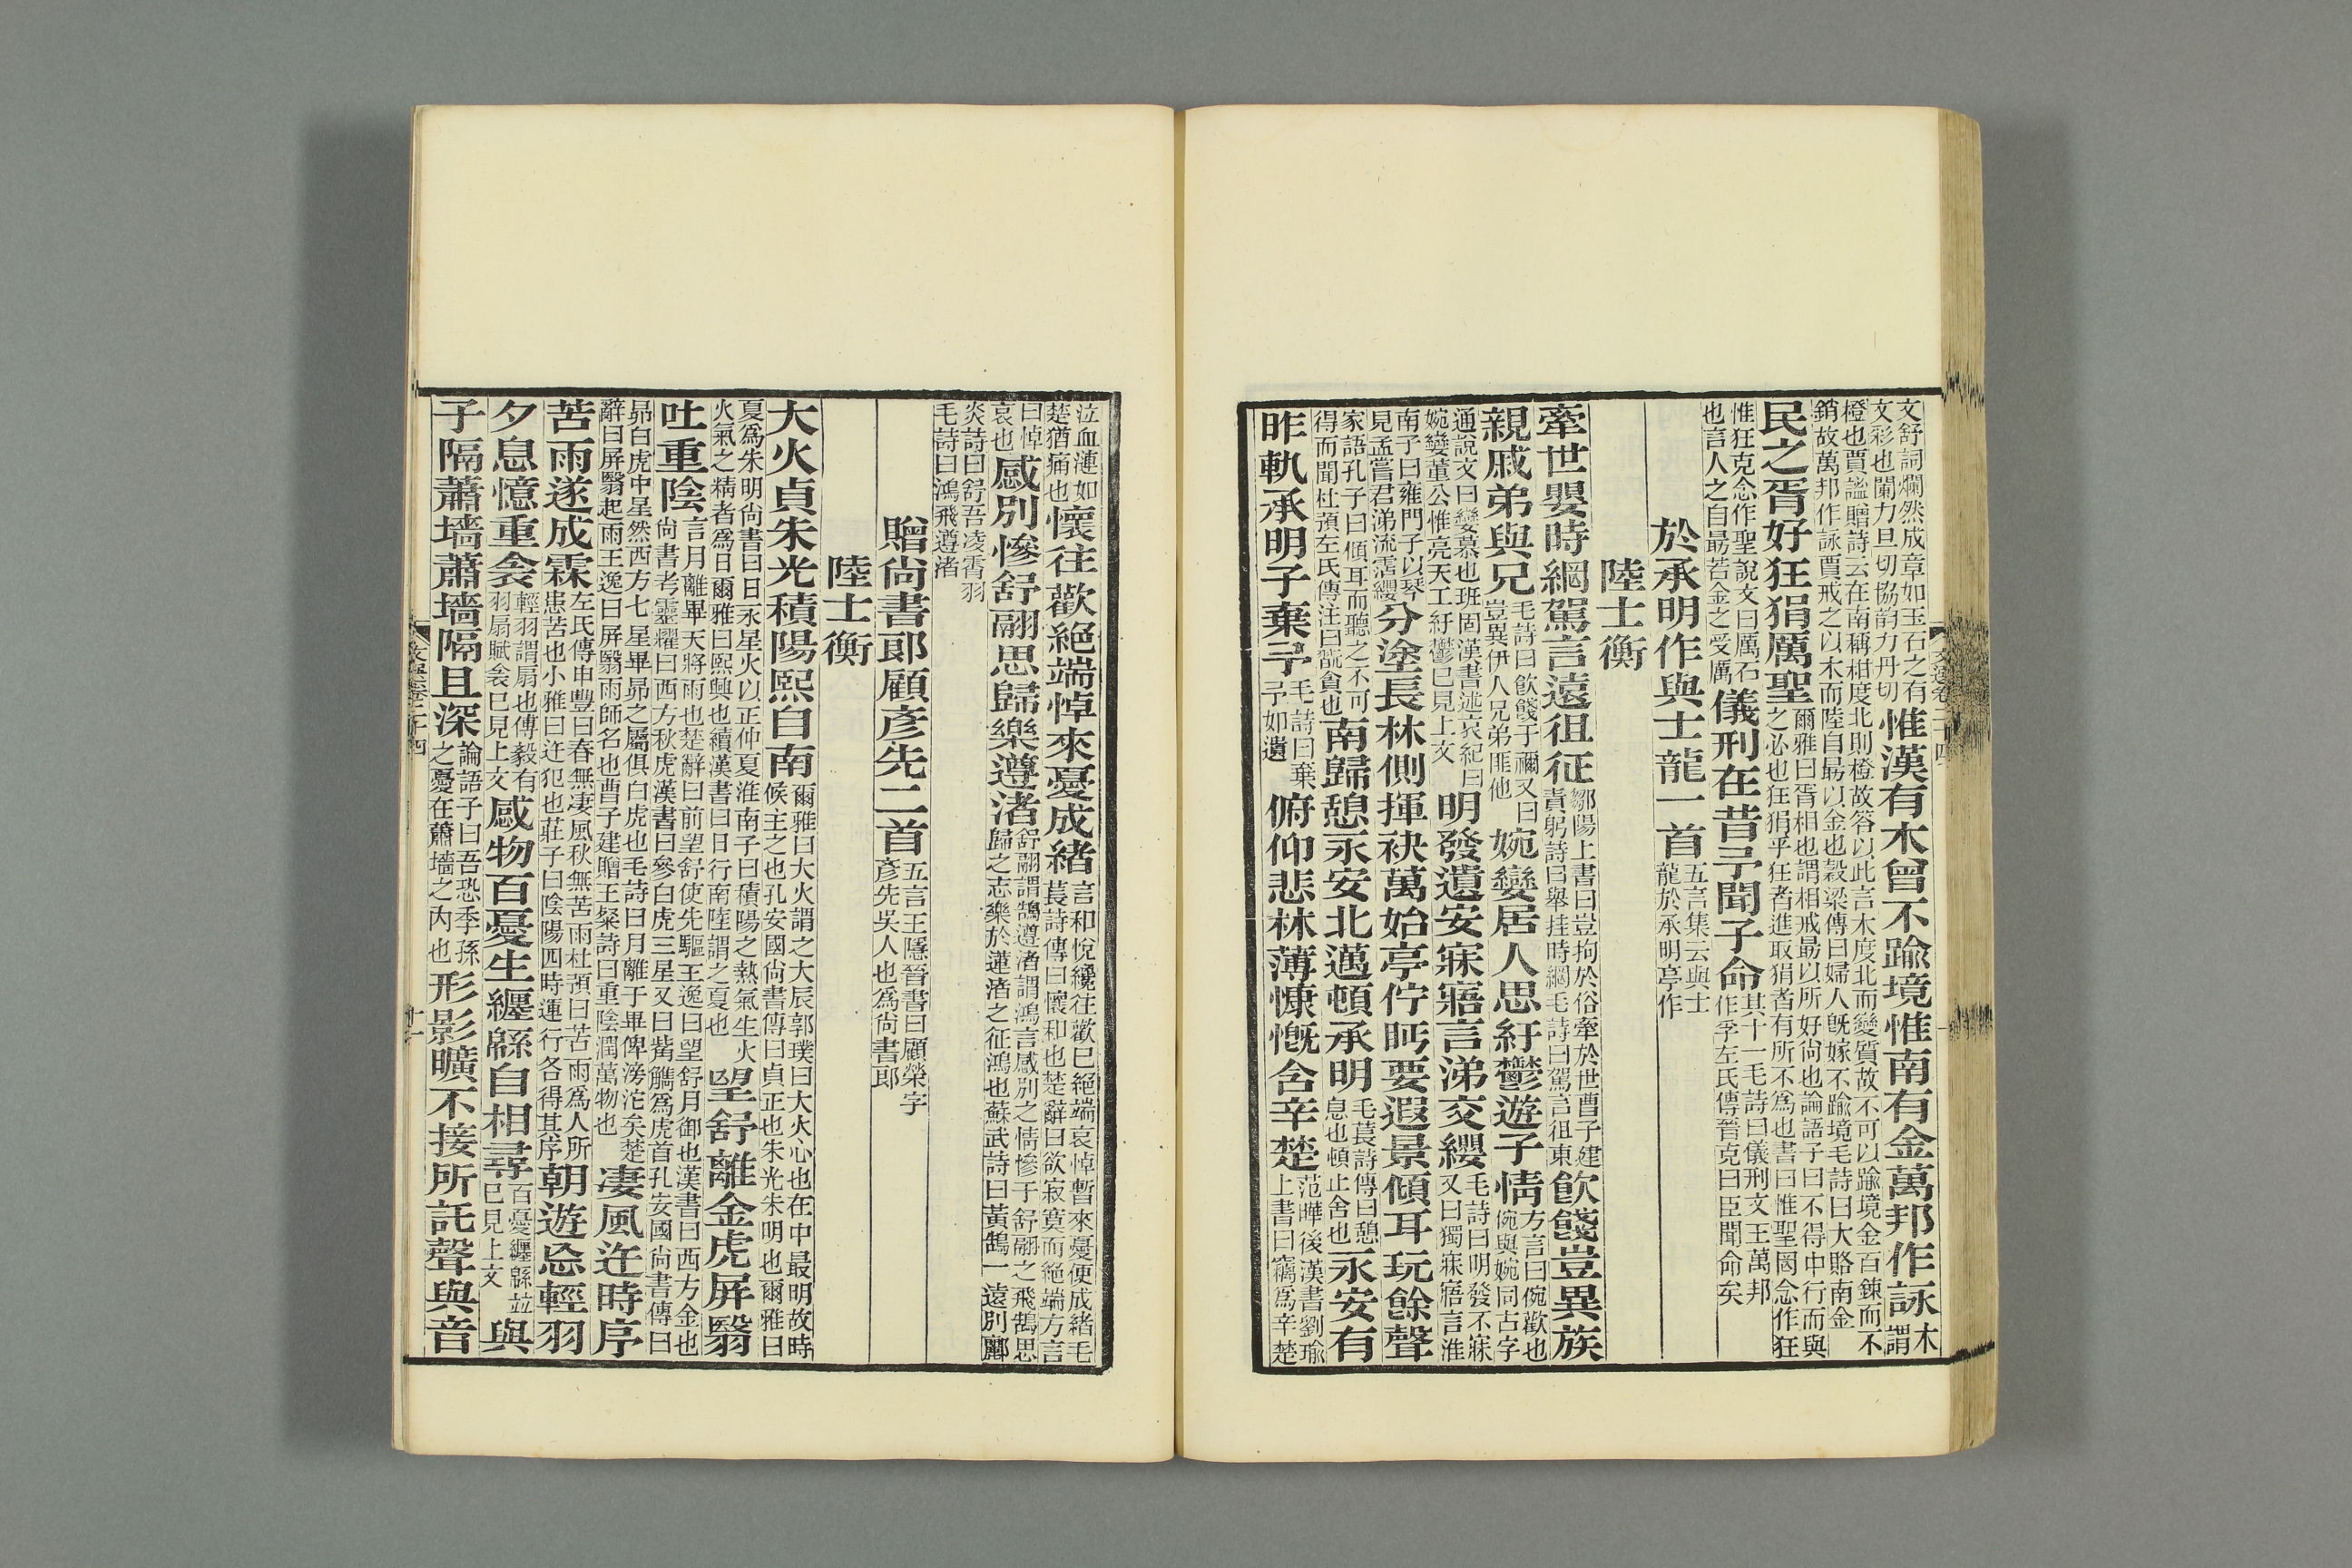 文舒詞爛然成章如玉石之有文彩也闌力旦切協韵力丹切惟漢有木曾不踰境惟南有金萬邦作詠木謂
橙也賈謐贈詩云在南稱柑度北則橙故答以此言木度北而變質故不可以踰境金百鍊而不銷故萬邦作詠賈戒之以木而陸自最以金也榖梁傳曰婦人旣嫁不踰境毛詩曰大賂南金
民之胥好狂狷厲聖爾雅曰胥相也謂相戒最以所好尚也論語子曰不得中行而與之必也狂狷乎狂者進取狷者有所不爲也書曰惟聖罔念作狂
惟狂克念作聖說文曰厲石也言人之自最若金之受厲儀刑在昔予聞子命其十一毛詩曰儀刑文王萬邦作孚左氏傳晉克曰臣聞命矣
於承明作與士龍一首五言集云與士龍於承明亭作
陸士衡
牽世嬰時網駕言遠徂征鄒陽上書曰豈拘於俗牽於世曹子建責躬詩曰舉挂時網毛詩曰駕言徂東飮餞豈異族
親戚弟與兄毛詩曰飮餞于禰又曰豈異伊人兄弟匪他婉孌居人思紆鬱遊子情方言曰惋歡也惋與婉同古字
通說文曰孌慕也班固漢書述哀紀曰婉孌董公惟亮天工紆鬱已見上文明發遺安寐寤言涕交纓毛詩曰明發不寐又曰獨寐寤言淮
南子曰雍門子以琴見孟嘗君涕流霑纓分塗長林側揮袂萬始亭佇眄要遐景傾耳玩餘聲
家語孔子曰傾耳而聽之不可得而聞杜預左氏傳注曰翫貪也南歸憩永安北邁頓承明毛萇詩傳曰憩息也頓止舍也永安有
昨軌承明子棄予毛詩曰棄予如遺俯仰悲林薄慷慨含辛楚范曄後漢書劉瑜上書曰竊爲辛楚
文選卷二十四
泣血漣如楚猶痛也懷往歡絕端悼來憂成緒言和悅纔往歡已絕端哀悼暫來憂便成緒毛萇詩傳曰懷和也楚辭曰欲寂寞而絕端方言
曰悼哀也感別慘舒翮思歸樂遵渚舒翮謂鵠遵渚謂鴻言感別之情慘于舒翮之飛鵠思歸之志樂於遵渚之征鴻也蘇武詩曰黃鵠一遠別酈
炎詩曰舒吾凌霄羽毛詩曰鴻飛遵渚
贈尙書郎顧彥先二首五言王隱晉書曰顧榮字彥先吳人也爲尙書郎
陸士衡
大火貞朱光積陽熙自南爾雅曰大火謂之大辰郭璞曰大火心也在中最明故時候主之也孔安國尙書傳曰貞正也朱光朱明也爾雅曰
夏爲朱明尙書曰日永星火以正仲夏淮南子曰積陽之熱氣生火火氣之精者爲日爾雅曰熙興也續漢書曰日行南陸謂之夏也望舒離金虎屏翳
吐重陰尙書考靈耀曰西方秋虎漢書曰參白虎三星又曰觜觿爲虎首孔安國尙書傳曰言月離畢天將雨也楚辭曰前望舒使先驅王逸曰望舒月御也漢書曰西方金也
昴白虎中星然西方七星畢昴之屬俱白虎也毛詩曰月離于畢俾滂沱矣楚辭曰屏翳起雨王逸曰屏翳雨師名也曹子建贈王粲詩曰重陰潤萬物也淒風迕時序
苦雨遂成霖左氏傳申豐曰春無淒風秋無苦雨杜預曰苦雨爲人所患苦也小雅曰迕犯也莊子曰陰陽四時運行各得其序朝遊忘輕羽
夕息憶重衾輕羽謂扇也傅毅有羽扇賦衾已見上文感物百憂生纏緜自相尋百憂纏緜並已見上文與
子隔蕭墻蕭墻隔且深論語子曰吾恐季孫之憂在蕭墻之內也形影曠不接所託聲與音
文選卷二十四